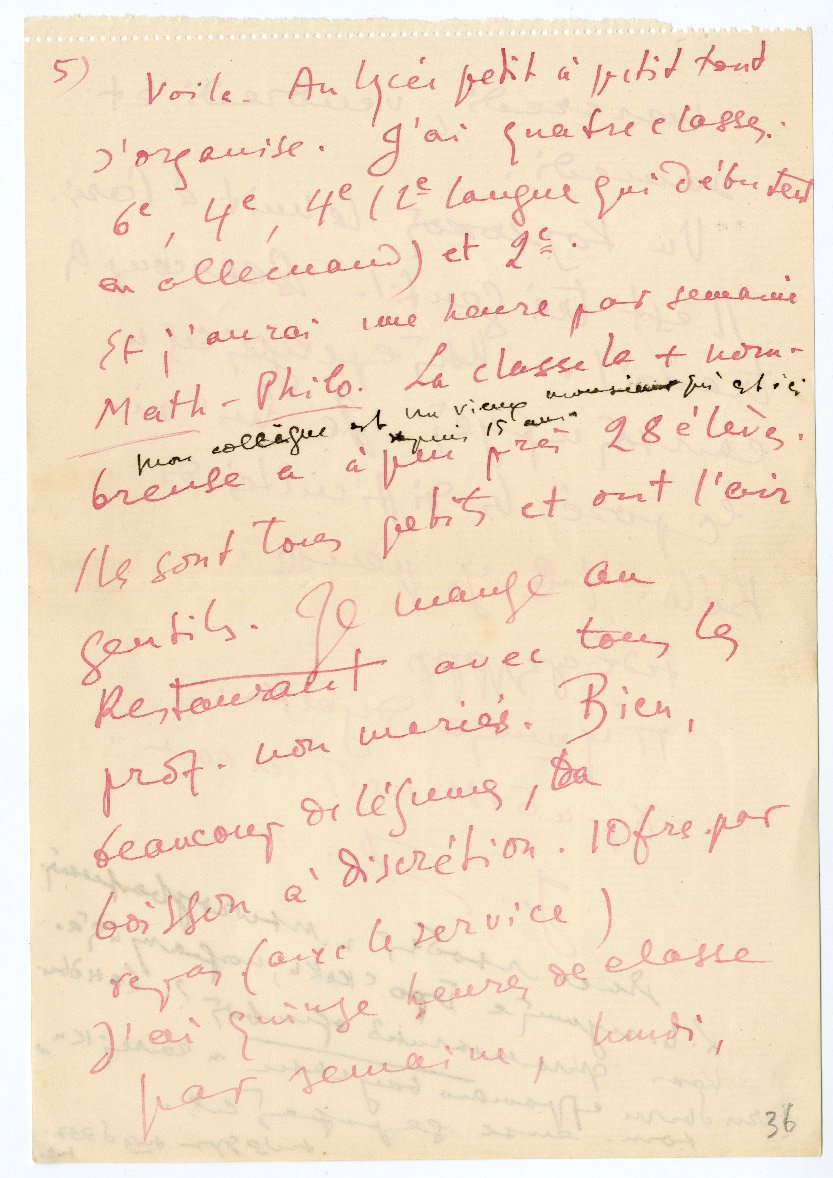 5) Voilà. Au lycée petit à petit tout
s'organise. J'ai quatre classes.
6e, 4e, 4e (2e langue qui débutent
en allemand) et 2e.
Et j'aurai une heure par semaine
Math-Philo. La classe la + nom-
mon collègue est un vieux monsieur qui est ici
depuis 15 ans.
breuse a à peu près 28 élèves.
Ils sont tous petits et ont l'air
gentils. Je mange au
Restaurant avec tous les
prof. non mariés. Bien,
beaucoup de légumes, la
boisson à discrétion. 10 frs. par
repas (avec le service)
J'ai quinze heures de classe
par semaine, lundi,
36